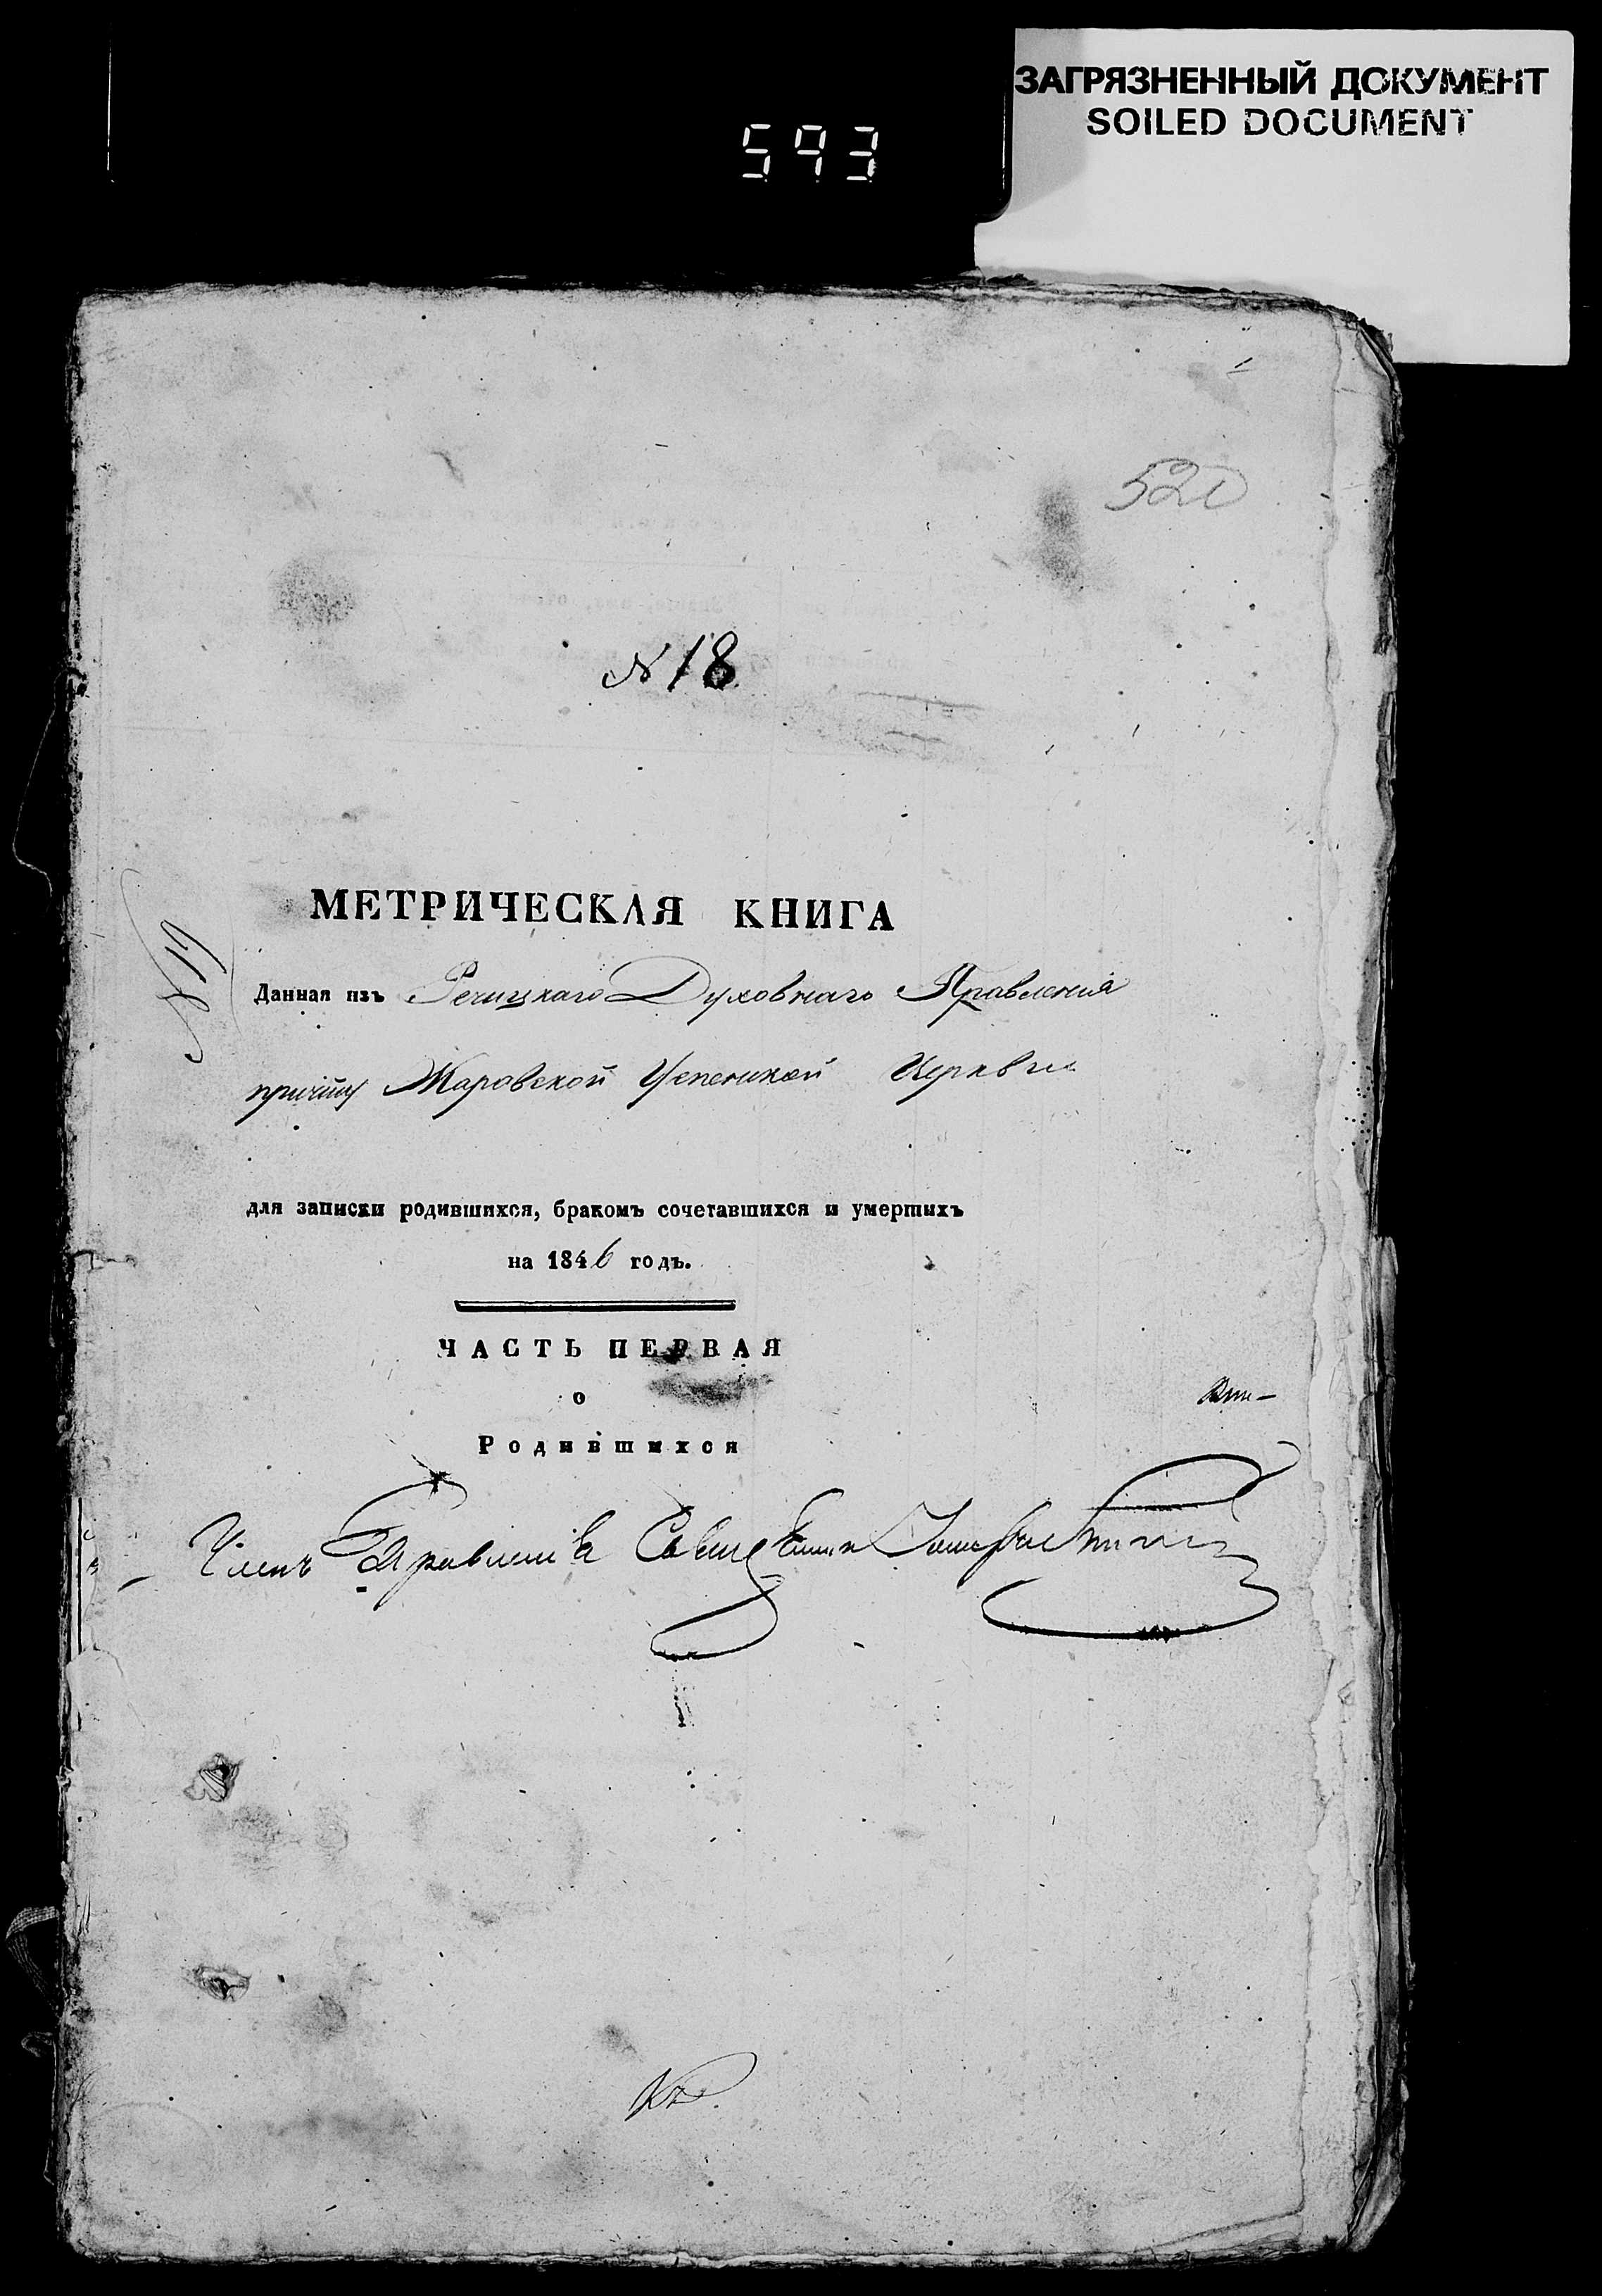 ЗАГРЯЗНЕННЫЙ ДОКУМЕНТ
SOILED DOCUMENT
593
520
N 18
МЕТРИЧЕСКАЯ КНИГА
Данная изъ Речицкаго Духовнаго Правления
причту Жаровской Успенской Церкви
для записки родившихся, бракомъ сочетавшихся и умершихъ
на 1846 годъ.
ЧАСТЬ ПЕРВАЯ
о
Родившихся
Членъ Правления